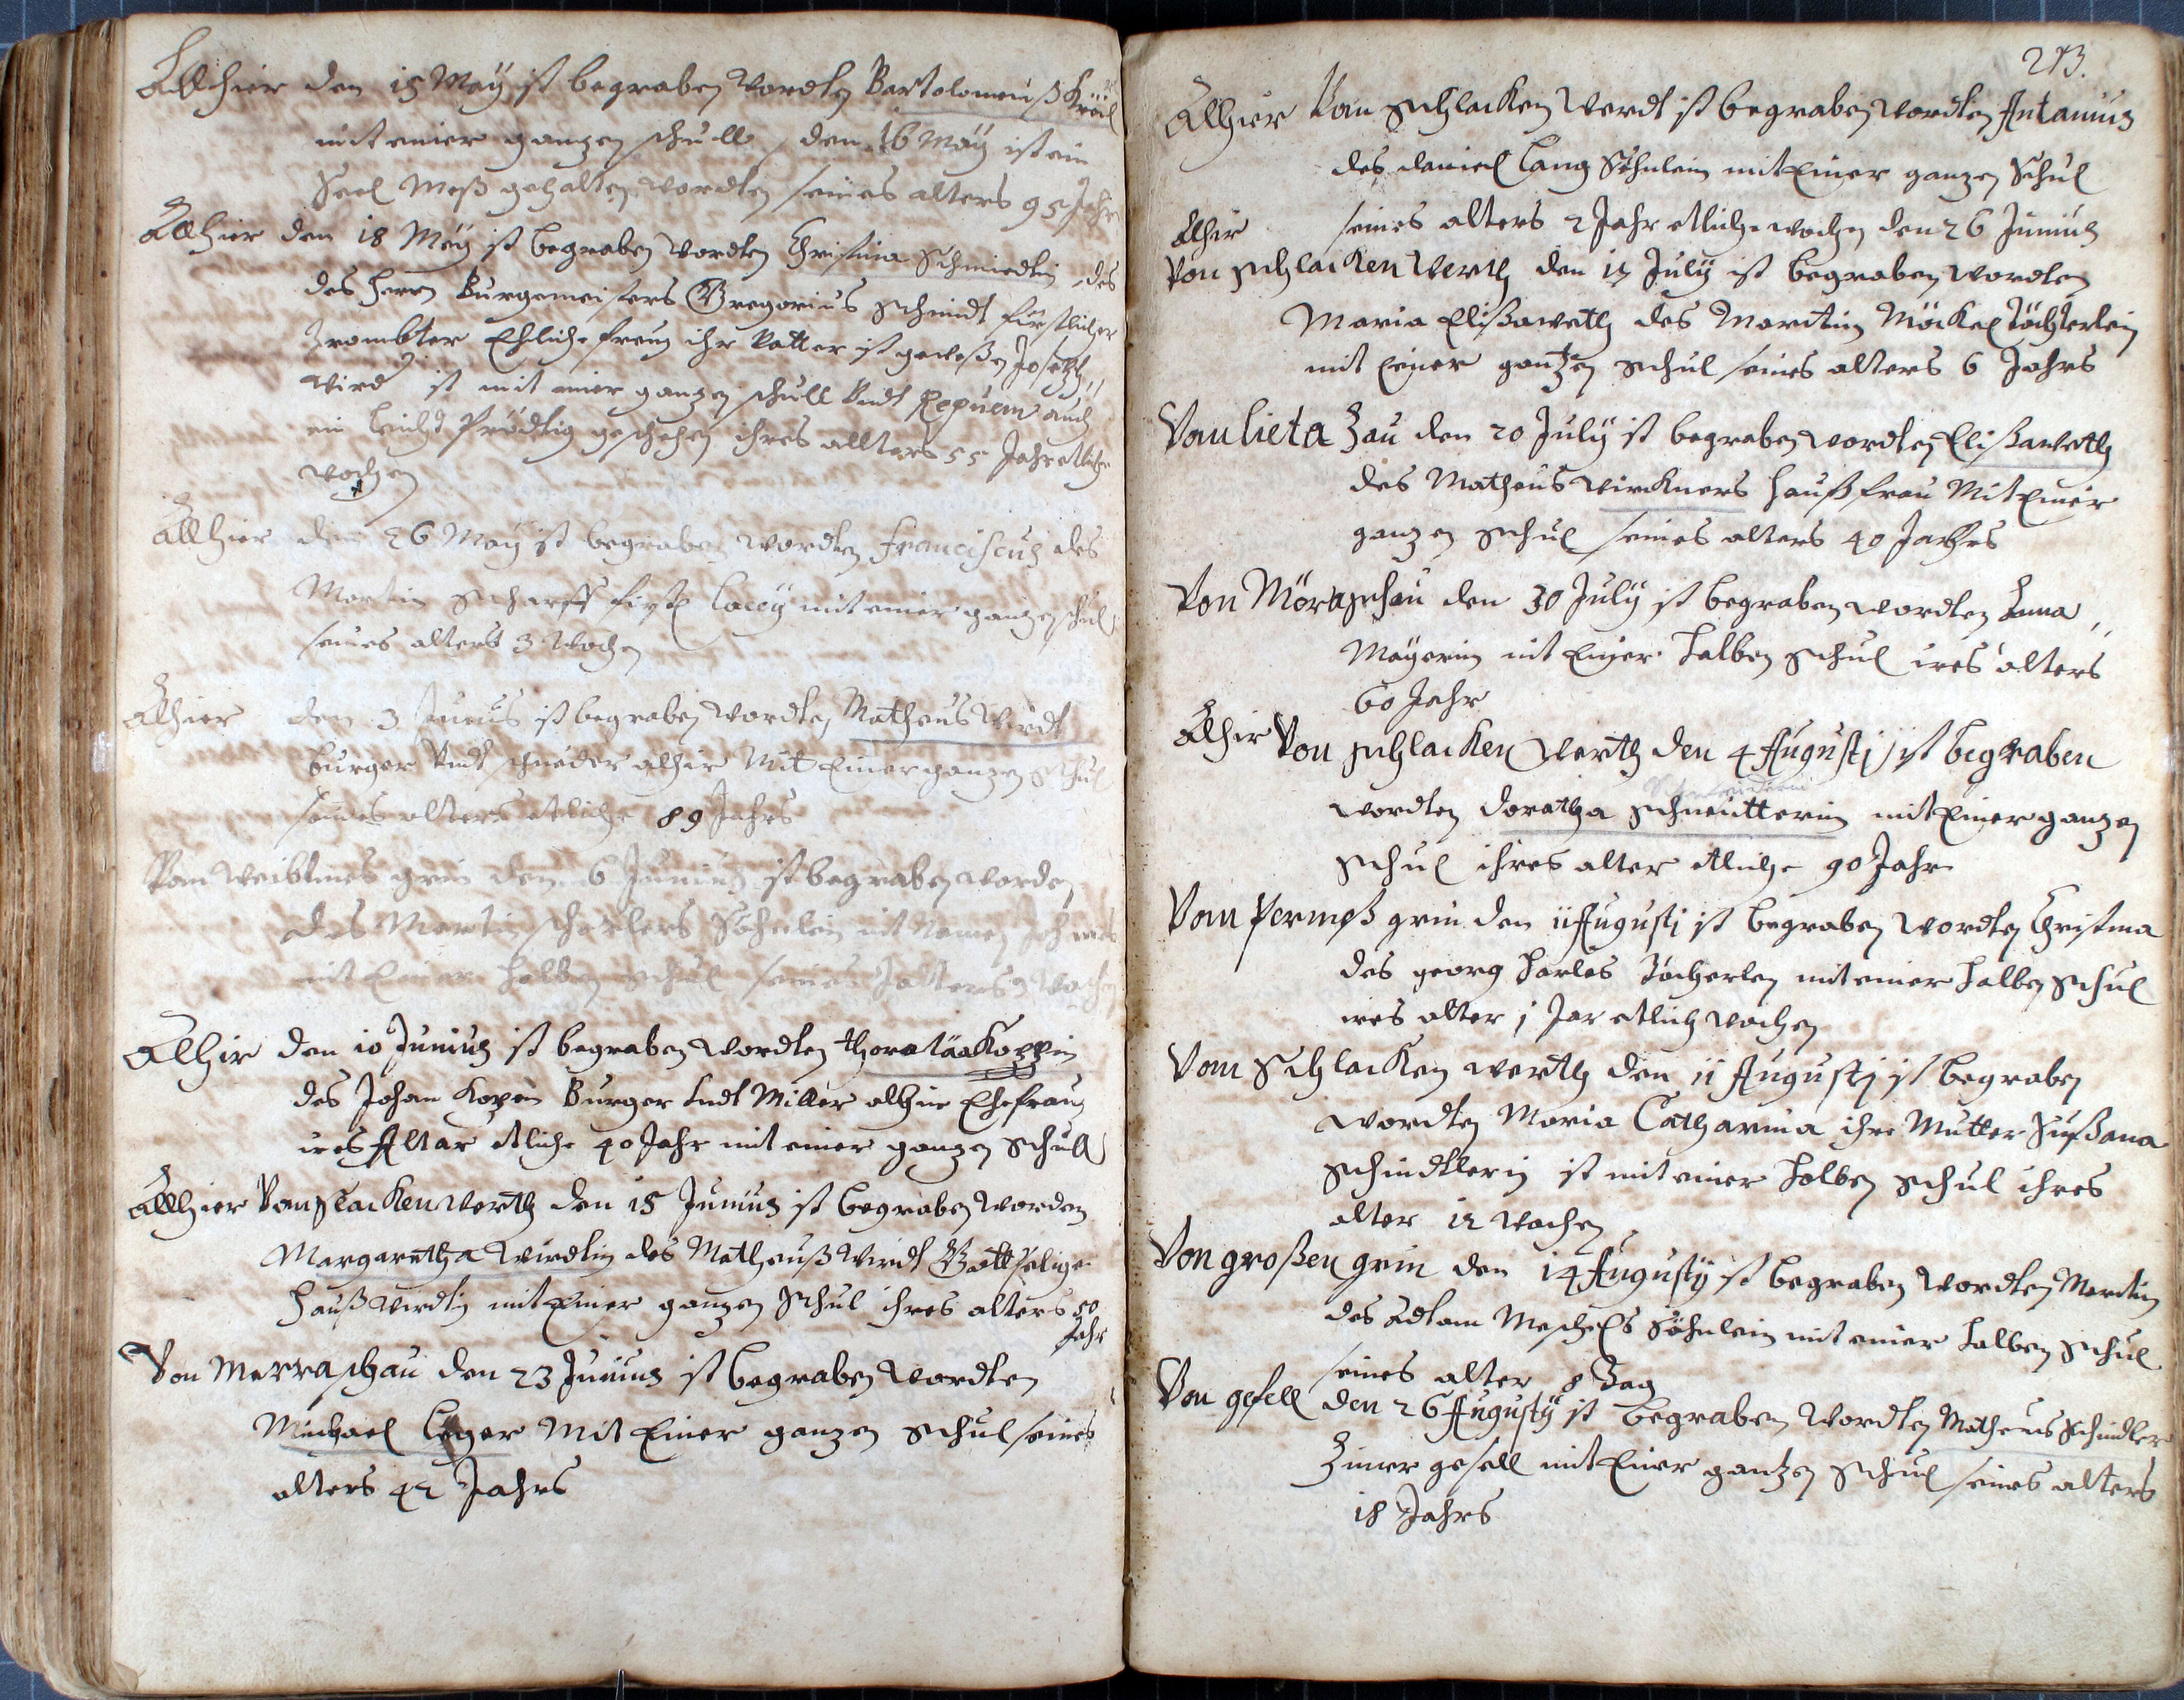 Allhier den 15 Maÿ ist begraben wordten Bartolomeuß Kröll
mit einer ganzen schull, den 16 Maÿ ist ein
Seel Meß gehalten wordten seines alters 95 Jahr
Allhier den 18 Meÿ ist begraben wordten Christina Schmiedtin, des
des Herrn Burgemeisters Gregorius Schmidt fürstlicher
Ehliche fraug ihr Vatter ist geweßen Joseph
ist mit einer ganzen schull Undt Requem auch
ein leicht Prödtig geschehen ihres allters 55 Jahr etliche
wochen
Allhier den 26 Maÿ ist begraben wordten Franciscus des
Martin Scharff mit einer ganzen schul
seines alters 3 wochen
Allhier den 3 Junius ist begraben wordten Matheus Wirdt
burger Undt schneider alhir Mit Einer ganzen Schul
seines alters etliche 89 Jahrs
Von grin den 6 Junius ist begraben worden
des Martin Söhnlein mit Namen
mit Einer halben schul seines alters 9 wochen
Allhir den 10 Junius ist begraben wordten thoratäa Koppin
des Johan Kopen Burger Undt Miller alhir Ehefraug
ires Altar etliche 40 Jahr mit einer ganzen Schull
Allhier Von slackenwerth den 15 Junius ist begraben worden
Margaretha Wirdtin des Matheuß Wirdt Gottselige
Haußwirdtin mit Einer ganzen Schul ihres alters 50
Jahr
Von Merraschau den 23 Junius ist begraben wordten
Michael Mit Einer ganzen Schul seines
alters 42 Jahrs
213.
Allhier Von Schlackenwerdt ist begraben wordten Antanius
des daniel Lang Söhnlein mit Einer ganzen Schul
seines alters 2 Jahr etliche wochen den 26 Junius
Alhir
Von Schlackenwerth den 12 Julÿ ist begraben wordten
Maria Elißaweth des Martin Möckel töchterlein
mit Einer gantzen Schul seines alters 6 Jahrs
Von lieta Zau den 20 Julÿ ist begraben wordten Elißaweth
des Matheus Wirckners Haußfrau Mit Einer
ganzen Schul seines alters 40 Jarhrs
Von Möraschau den 30 Julÿ ist begraben wordten Anna
Maÿerin mit Einer Halben Schul ires alters
60 Jahr
Alhir Von schlackenwerth den 4 Augusti ist begraben
wordten doratha Schneitterin mit Einer ganzen
Schul ihres alter etliche 90 Jahr
Von permeß grin den 11 Augusti ist begraben wordten Christina
des georg Harles töcherlen mit einer Halben Schul
ires alter 1 Jar etlich wochen
Vom Schlackenwerth den 11 Augusti ist begraben
wordten Maria Catharina ihre Mutter Sußana
Schindtlerin ist mit einer Halben Schul ihres
alter 12 wochen
Von großen grin den 14 Augustÿ ist begraben wordten Martin
des Adtam Söhnlein mit einer Halben Schul
seines alter 8 Tag
Von gesell den 26 Augustÿ ist begraben wordten Matheus Schindler
Zimer gesell mit Einer gantzen Schul seines alters
18 Jahrs